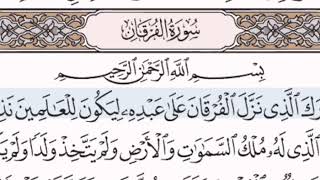 سُورَةُ الْفُرْقَانِ
بِسْمِ اللَّهِ الرَّحْمَٰنِ الرَّحِيمِ
الَّذِى نَزَّلَ الْفُرْقَانَ عَلَىٰ عَبْدِهِۦ لِيَكُونَ لِلْعَالَمِينَ
الَّذِى لَهُۥ مُلْكُ السَّمَٰوَٰتِ وَالْأَرْضِ وَلَمْ يَتَّخِذْ وَلَدًا وَلَمْ